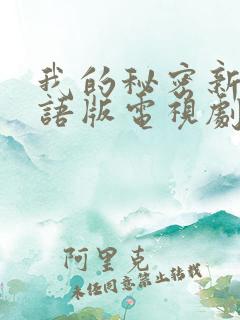 我的秘密新
語版電視劇
阿里克
未经同意禁止转载